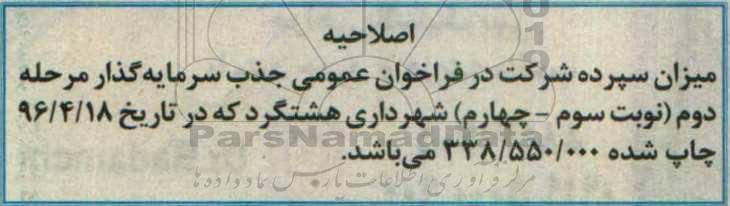 اصلاحیه
میزان سپرده شرکت در فراخوان عمومی جذب سرمایه‌گذار مرحله
دوم (نوبت سوم - چهارم) شهرداری هشتگرد که در تاریخ ۹۶/۴/۱۸
چاپ شده ۳۳۸/۵۵۰/۰۰۰ می‌باشد.
ParsNamadData
مرکز فرآوری اطلاعات پارس نماد داده ها